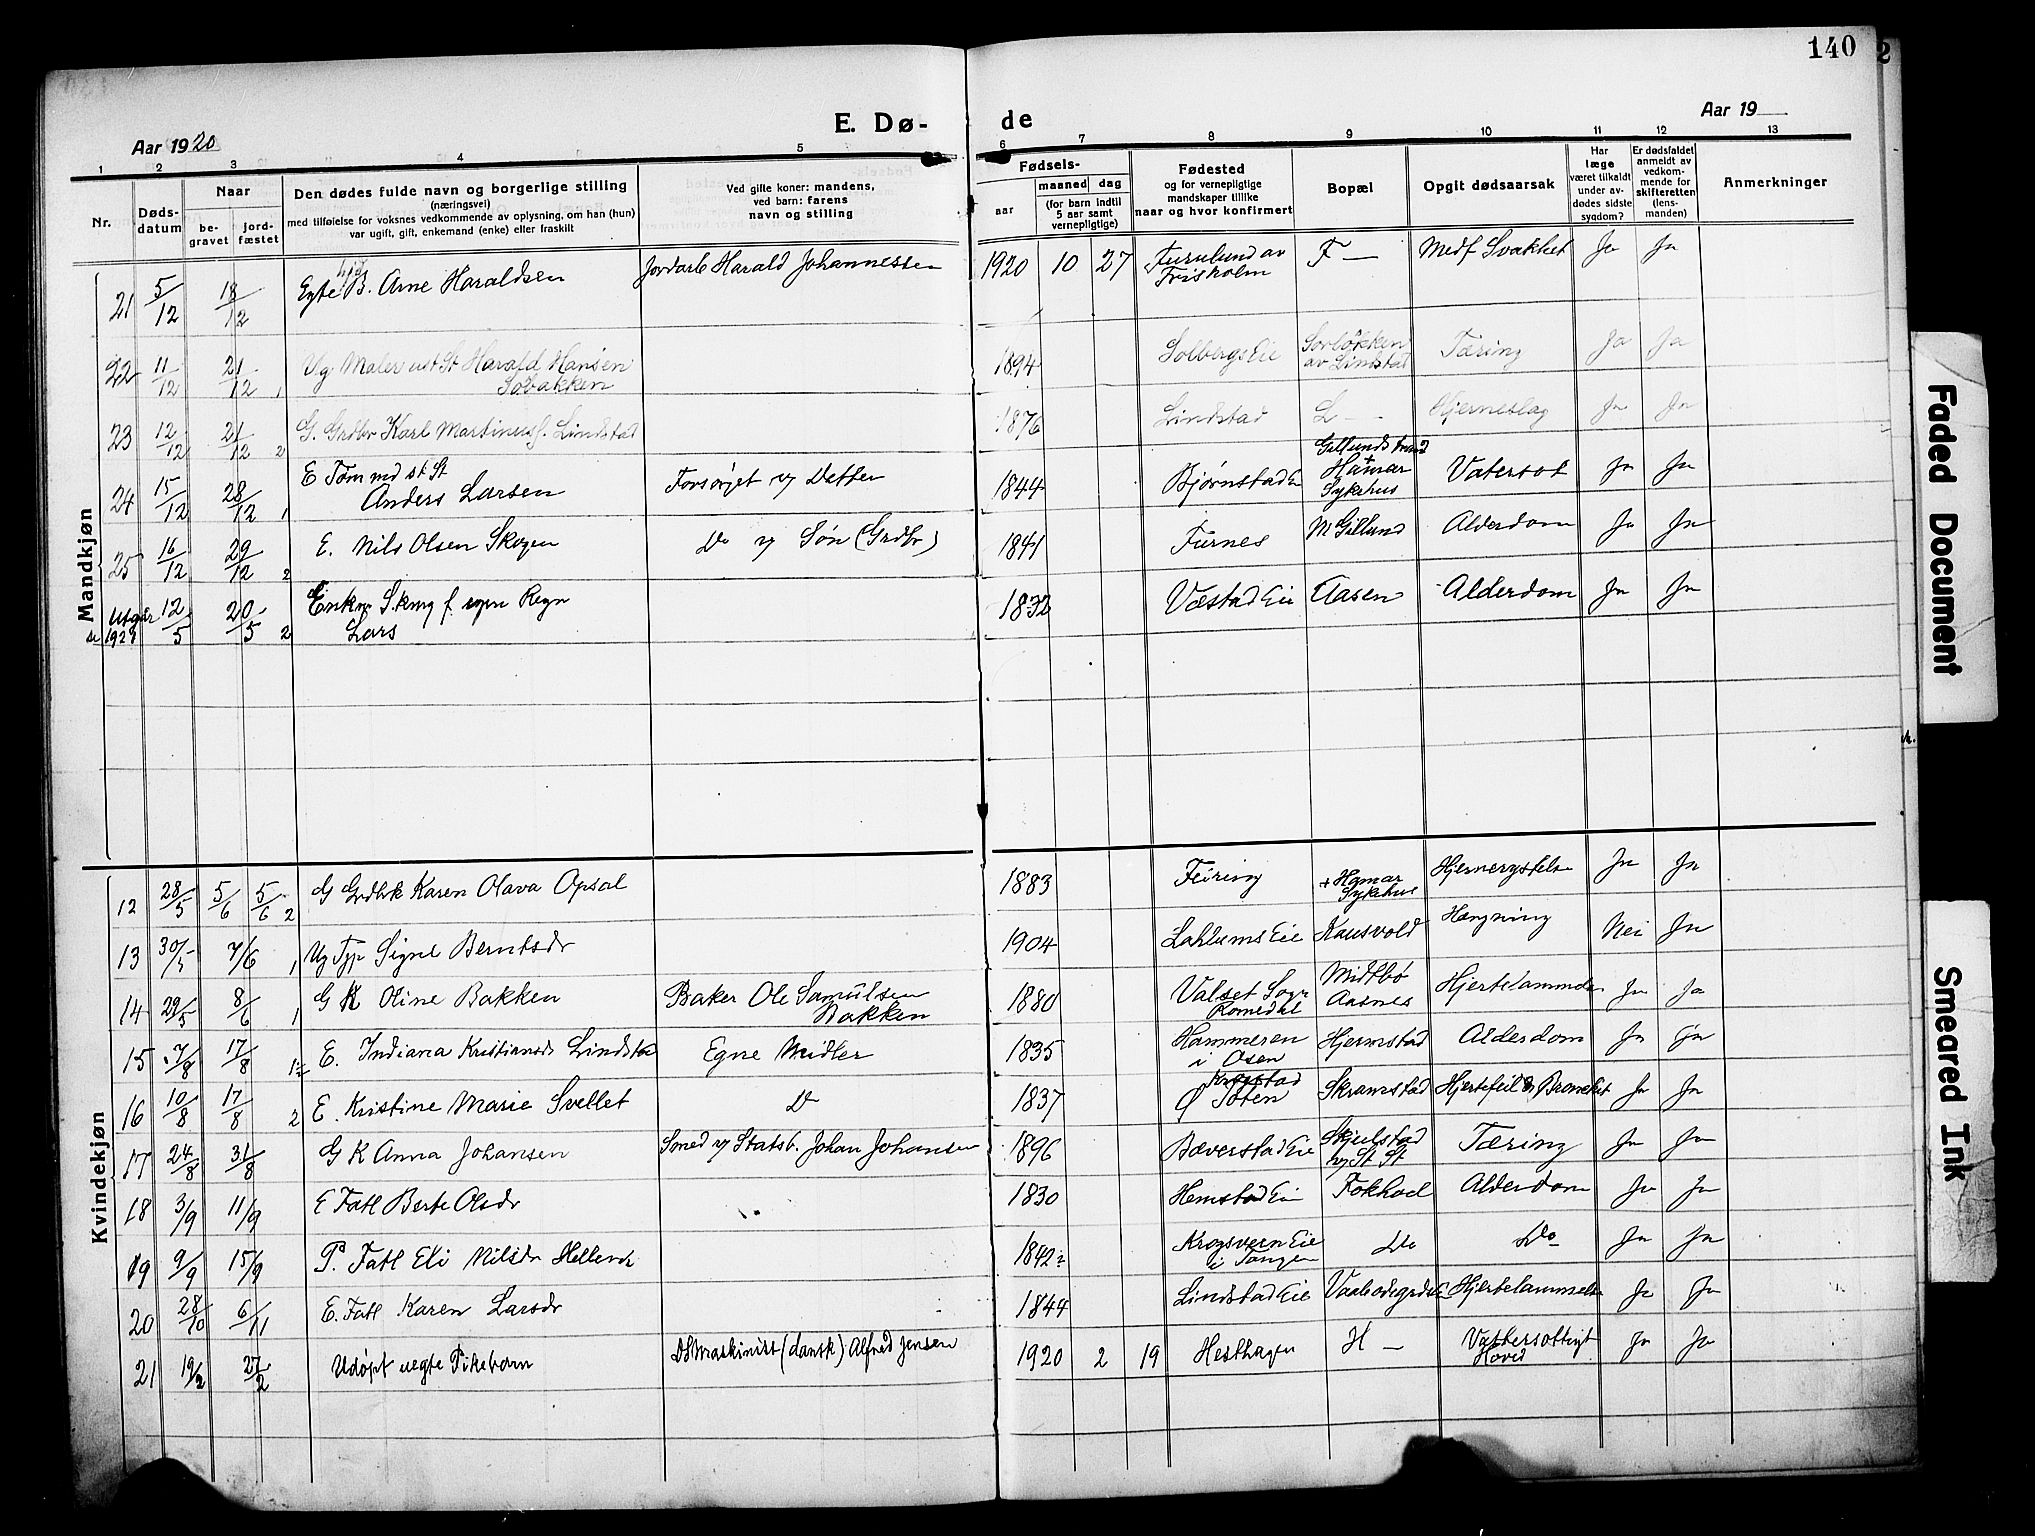 140
2
Aar 1920
E. Dø-
de
Aar 19
1 2 3 4 5 6 7 8 9 10 11 12 13
Nr.
Døds-
datum
Naar
be-
gravet
jord-
fæstet
Den dødes fulde navn og borgerlige stilling
(næringsvei)
med tilføielse for voksnes vedkommende av oplysning, om han (hun)
var ugift, gift, enkemand (enke) eller fraskilt
Ved gifte koner: mandens,
ved barn: farens
navn og stilling
Fødsels-
aar
maaned dag
(for barn indtil
5 aar samt
vernepligtige)
Fødested
og for vernepligtige
mandskaper tillike
naar og hvor konfirmert
Bopæl
Opgit dødsaarsak
Har
læge
været tilkaldt
under av-
dødes sidste
sygdom?
Er dødsfaldet
anmeldt av
vedkom-
mende for
skifteretten
(lens-
manden)
Anmerkninger
Mandkjøn
21 5/12 18/12 Egte B. Arne Haraldsen Jordarb Harald Johannessen 1920 10 27 Furulund av F — Medf Svakhet Ja Ja
Frisholm
22 11/12 21/12 1 Ug Maler ust St Harald Hansen 1894 Solbergs Eie Sorløkken Tæring Ja Ja
Sobakken av Lindstad
23 12/12 21/12 2 G. Grdbr Karl Martinus f. Lindstad 1876 Lindstad L — Hjerneslag Ja Ja
24 15/12 28/12 1 E Tømmd st St Forsørjet v Datter 1844 Bjørnstad E + Hamar Vatersot Ja Ja
Anders Larsen Sykehus
25 16/12 29/12 2 E. Nils Olsen Skogen Do v Søn (Grdbr) 1841 Furnes M Gillund Alderdom Ja Ja
utgår 12/5 20/5 2 1832 Væstad Eie Aasen Alderdom Ja Ja
Lars
Kvindekjøn
12 28/5 5/6 5/6 2 G Grdbrk Karen Olava Opsal 1883 Feiring + Hamar Hjernerystelse Ja Ja
Sykehus
13 30/5 7/6 1 Ug Tjp Signe Berntsdr 1904 Lahlums Eie Kausvold Hængning Nei Ja
14 29/5 8/6 1 G K Oline Bakken Baker Ole Samulsen 1880 Valset Sogn Midtbø Hjertelammelse Ja Ja
Bakken Romedal Aasnes
15 7/8 17/8 E. Indiana Kristiansdr Lindstad Egne Midler 1835 Hammeren Hjermstad Alderdom Ja Ja
i Osen
16 10/8 17/8 2 E. Kristine Marie Svellet Do 1837 Krogstad Skramstad Hjertefeil & Bronchit Ja Ja
Ø Toten
17 24/8 31/8 G K Anna Johansen Smed v Statsb. Johan Johansen 1896 Bæverstad Eie Skjelstad Tæring Ja Ja
v St St
18 3/9 11/9 E Fatl Berte Olsdr 1830 Hemstad Eie Fokhol Alderdom Ja Ja
19 9/9 15/9 P. Fatl Eli Nilsdr 1842 Krogsvern Eie Do Do Ja Ja
i Tangen
20 28/10 6/11 E. Fatl Karen Larsdr 1844 Lindstad Eie Hjertelammelse Ja Ja
21 19/2 27/2 Udøpt uegte Pikebarn Maskinist (dansk) Alfred Jensen 1920 2 19 Hesthagen H — Ja Ja
Hoved
Faded Document
Smeared Ink